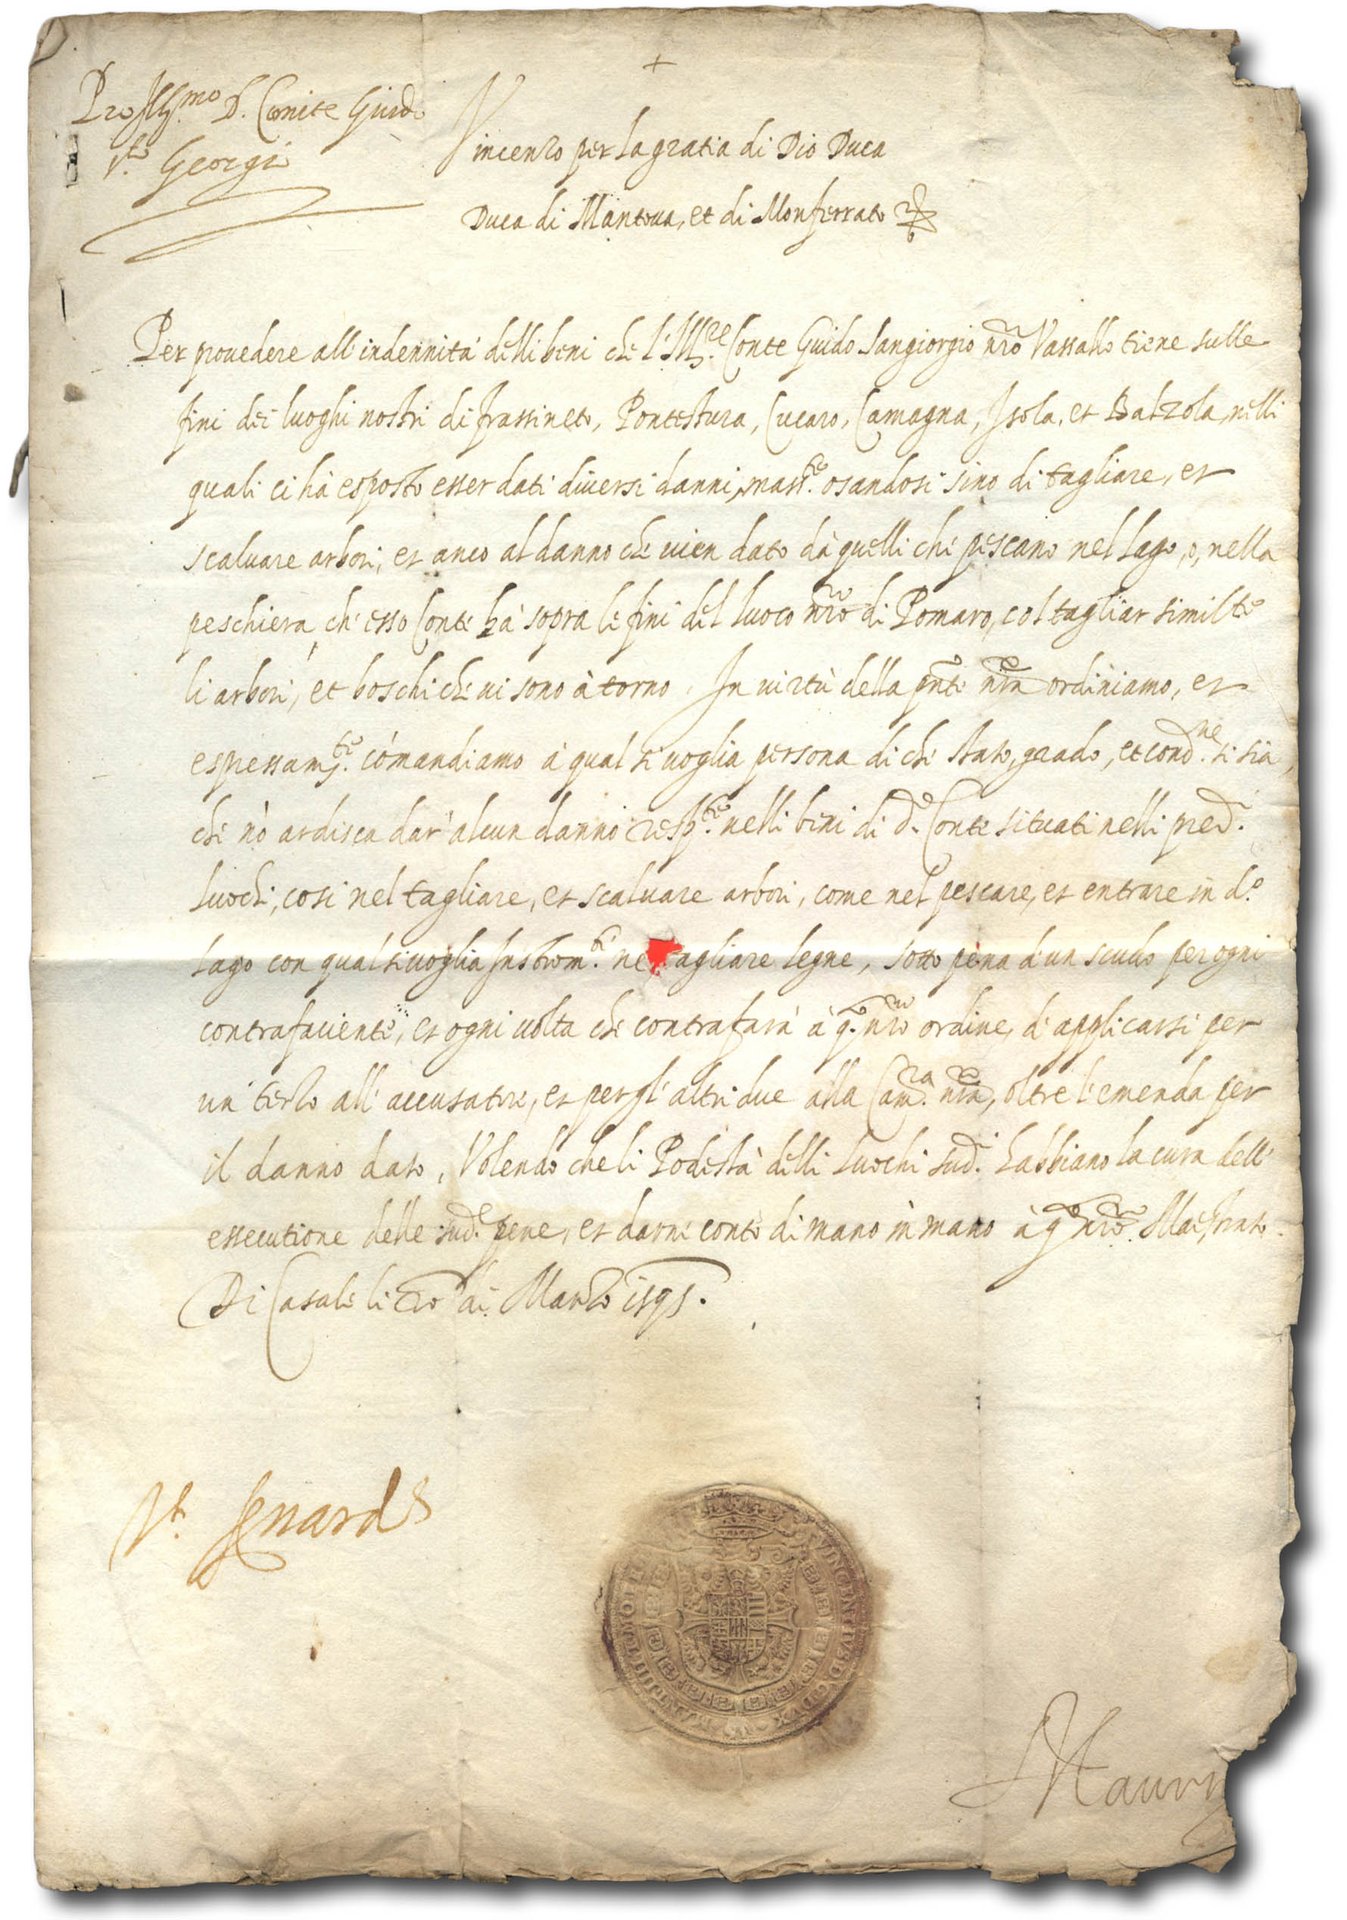 +
Pro Ill.mo D. Comite Guido
S.to Georgi
Vincenzo per la gratia di Dio Duca
Duca di Mantoua, et di Monferrato
Per prouedere all'indennità delli beni che l'Ill.re Conte Guido Sangiorgio nro Vassallo tiene sulle
fini dei luoghi nostri di frassineto, Pontestura, Cucaro, Camagna, Isola, et Balzola, nelli
quali ci hà esposto esser dati diuersi danni, mass.e osandosi sino di tagliare, et
scaluare arbori, et anco al danno che uien dato dà quelli che pescano nel lago, o, nella
peschiera ch'esso Conte hà sopra le fini del luoco nro di Pomaro, col tagliar similte
li arbori, et boschi che ui sono à torno. In uirtù della pnte nra ordiniamo, et
espressam.te comandiamo à qual si uoglia persona di che stato, grado, et cond.ne si sia,
che nò ardisca dar' alcun danno resp.te nelli beni di d.o Conte situati nelli pred.i
luochi, cosi nel tagliare, et scaluare arbori, come nel pescare, et entrare in d.o
lago con qual si uoglia Instrom.to ne agliare legne, sotto pena d'un scudo per ogni
contrafaciente, et ogni uolta che contrafarà à q.o nro ordine, d'applicarsi per
un terzo all'accusatore, et per gl'altri due alla Cam.ra nra, oltre l'emenda per
il danno dato, Volendo che li Podestà delli luochi sud.i habbiano la cura dell'
essecutione delle sud.e pene, et darne conto di mano in mano à q.o nro Mag.strato.
Di Casale li di Marzo 1595.
V.t
VINCENTIVS D G DVX MANTVÆ IIII ET MO